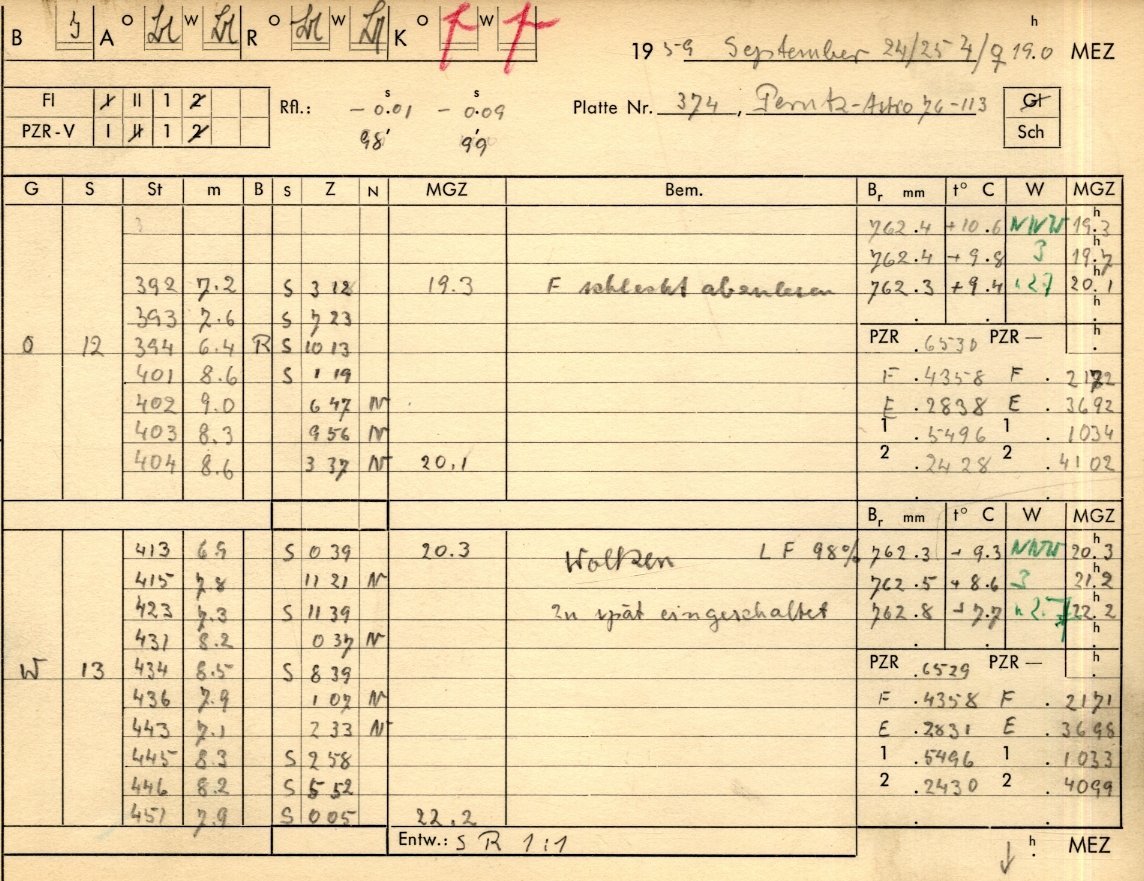 B A O W R O W K O W h
1959 September 24/25 19.0 MEZ
Fl I II 1 2 Rfl.: s - 0.01 s - 0.09 Platte Nr. 374, Perutz-Astro 76-113 Gl
PZR-V I II 1 2 98' 99' Sch
G S St m B S Z N MGZ Bem. Br mm t° C W MGZ
762.4 +10.6 NNW 19.3 h
762.4 +9.8 3 19.7 h
392 7.2 S 3 12 19.3 F schlecht abzulesen 762.3 +9.4 20.1 h
393 7.6 S 7 23 . . h
O 12 394 6.4 R S 10 13 PZR .6530 PZR — . h
401 8.6 S 1 19 F .4358 F . 2172
402 9.0 6 47 N E .2838 E . 3692
403 8.3 9 56 N 1 .5496 1 . 1034
404 8.6 3 37 N 20.1 2 .2428 2 . 4102
Br mm t° C W MGZ
413 6.9 S 0 39 20.3 Wolken L F 98% 762.3 + 9.3 NNW 20.3 h
415 7.8 11 21 N 762.5 +8.6 3 21.2 h
423 7.3 S 11 39 zu spät eingeschaltet 762.8 +7.7 22.2 h
431 8.2 0 37 N . . h
W 13 434 8.5 S 8 39 PZR .6529 PZR — . h
436 7.9 1 07 N F .4358 F . 2171
443 7.1 2 33 N E .2831 E . 3698
445 8.3 S 2 58 1 .5496 1 . 1033
446 8.2 S 5 52 2 .2430 2 . 4099
451 7.9 S 0 05 22.2
Entw.: S R 1:1 h . MEZ